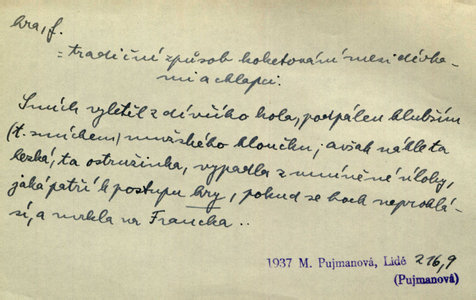 hra, f.
= tradiční způsob koketování mezi dívka-
mi a chlapci.
Smích vyletěl z dívčího kola, podpálen hlubším
(t. smíchem) mužského kloučku; avšak náhle ta
hezká, ta ostružinka, vypadla z míněné úlohy,
jaká patří k postupu hry, pokud se hoch neprohlá-
sí, a mrkla na Francka ..
1937 M. Pujmanová, Lidé 216,9
(Pujmanová)